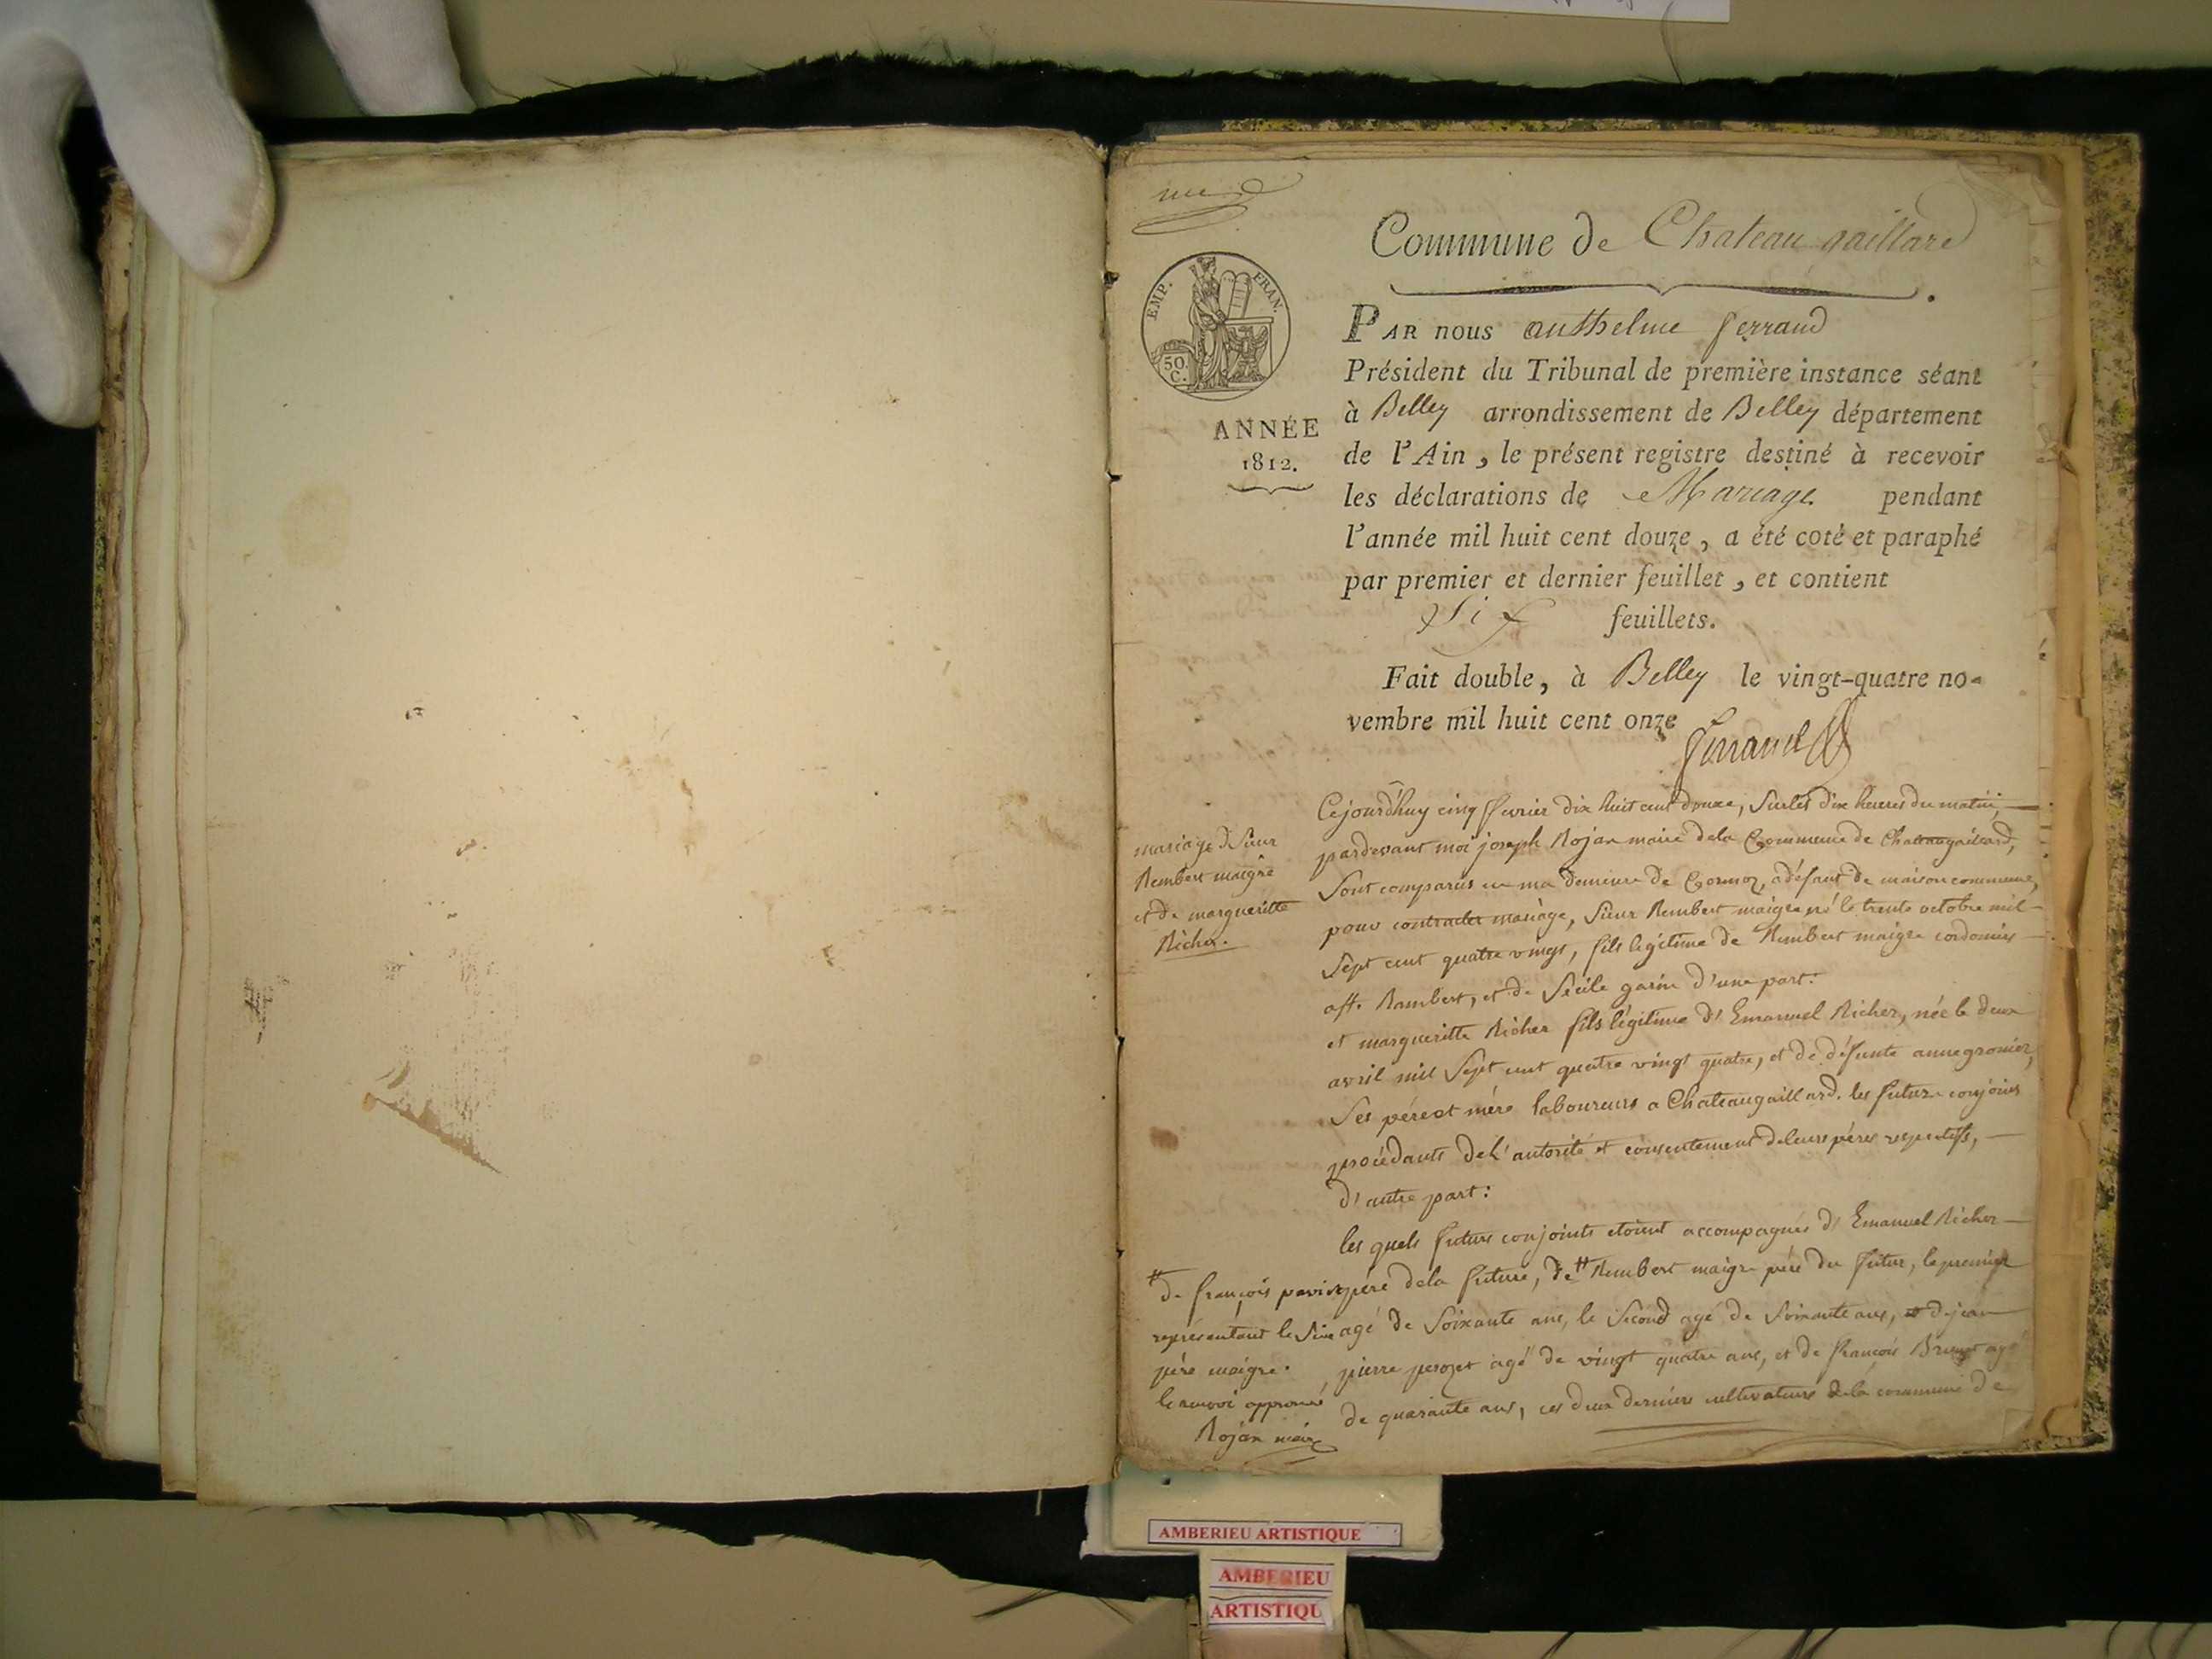 Commune de Chateau gaillard
EMP. FRAN.
50. C.
ANNÉE
1812.
PAR nous anthelme ferrand
Président du Tribunal de première instance séant
à Belley arrondissement de Belley département
de l'Ain, le présent registre destiné à recevoir
les déclarations de Mariage pendant
l'année mil huit cent douze, a été coté et paraphé
par premier et dernier feuillet, et contient
Six feuillets.
Fait double, à Belley le vingt-quatre no-
vembre mil huit cent onze
ferrand
mariage d Sieur
Rembert maigre
et de margueritte
Richer.
Cejourd'huy cinq fevrier dix huit cent douze, Surles dix heures du matin,
pardevant moi joseph Rojan maire dela Commune de Chateaugaillard,
Sont comparus en ma demeure de Cormoz, a défaut de maison commune,
pour contracter mariage, Sieur Rembert maigre né le trente octobre mil
Sept cent quatre vingt, fils légitime de Rembert maigre cordonier
a St. Rambert, et de Sécile garin d'une part:
et margueritte Richer fils légitime d'Emanuel Richer, née le deux
avril mil Sept cent quatre vingt quatre, et de défunte anne gromier,
Ses père et mère laboureurs a Chateaugaillard. les future conjoins
procédants de l'autorité et consentement de leurs pères respectifs,
d'autre part:
les quels future conjoints etoient accompagnés d'Emanuel Richer
père dela future, de # Rembert maigre père du futur, le premier
agé de Soixante ans, le Second agé de Soixante ans, et de jean
pierre perozet agé de vingt quatre ans, et de françois Brunet agé
de quarante ans, ces deux derniers cultivateurs dela commune de
# de françois
représentant le Sieur
père maigre.
le renvoi approuvé
Rojan maire
AMBERIEU ARTISTIQUE
AMBERIEU
ARTISTIQU